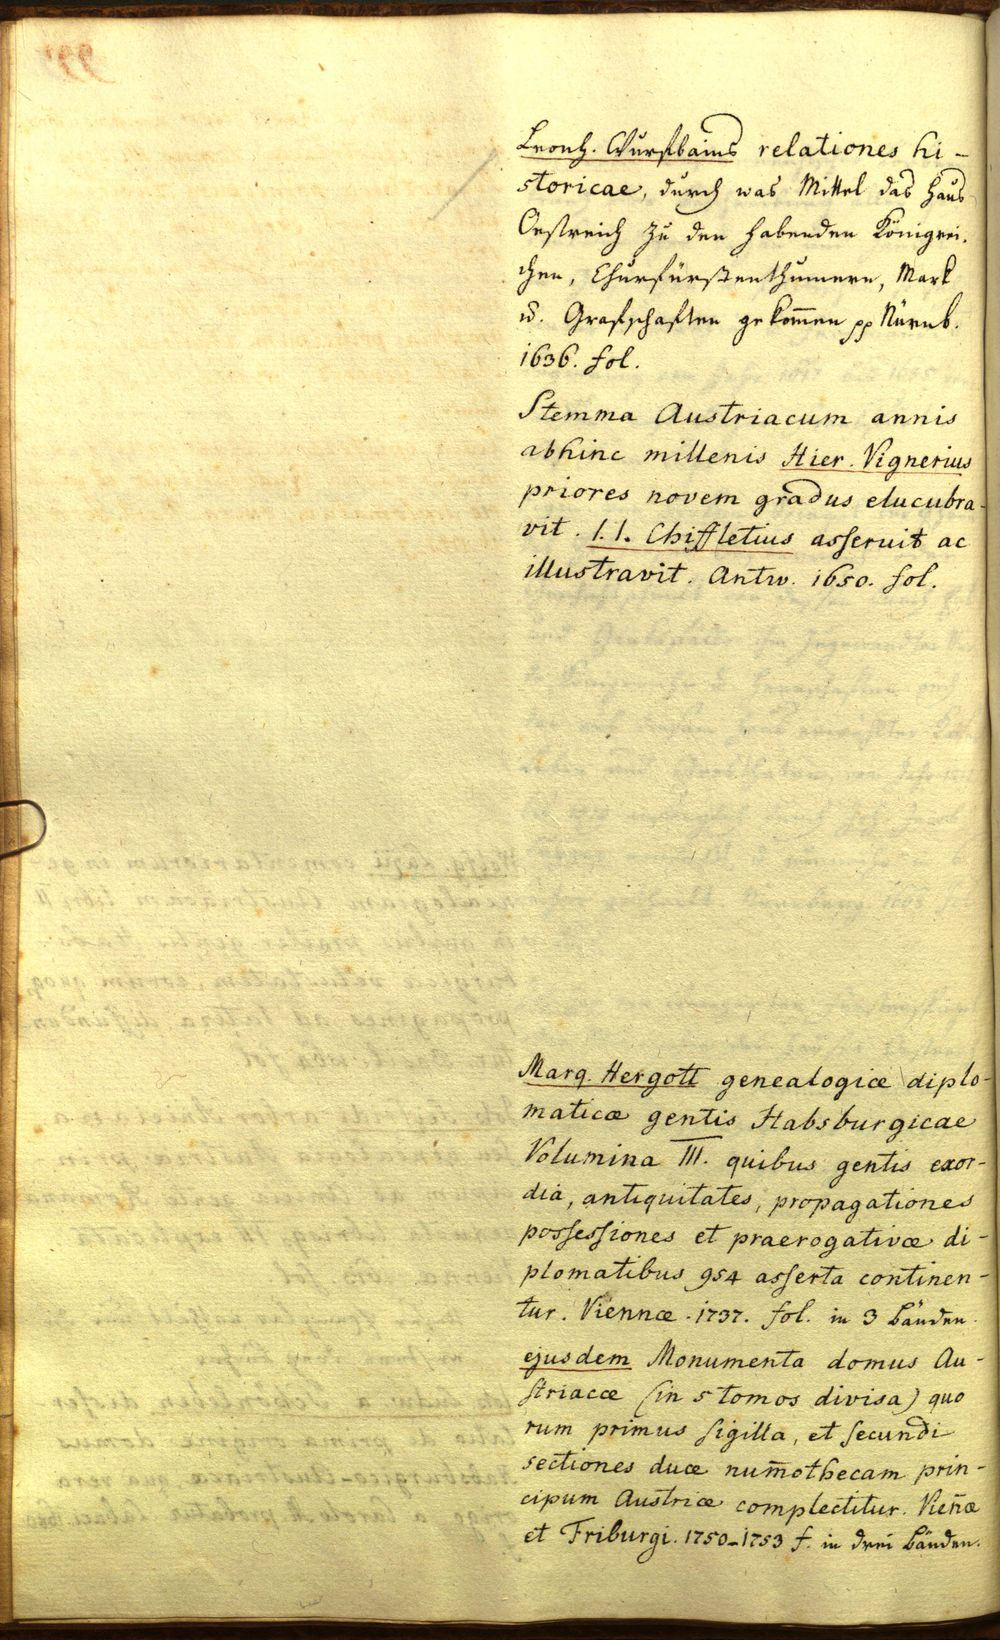 Leonh. Wurfbains relationes hi-
storicae, durch was Mittel das Haus
Oestreich zu den habenden Königrei-
chen, Churfürstenthumern, Mark
u. Grafschaften gekom̄en pp Nürnb.
1636. fol.
Stemma Austriacum annis
abhinc millenis Hier. Vignerius
priores novem gradus elucubra-
vit. I. I. Chiffletius asseruit ac
illustravit. Antw. 1650. fol.
Marq. Hergott genealogiæ diplo-
maticæ gentis Habsburgicae
Volumina III. quibus gentis exor-
dia, antiquitates, propagationes
possessiones et praerogativæ di-
plomatibus 954 asserta continen-
tur. Viennæ. 1737. fol. in 3 Bänden.
ejusdem Monumenta domus Au-
striacæ (in 5 tomos divisa) quo
rum primus sigilla, et secundi
sectiones duæ num̄othecam prin-
cipum Austriæ complectitur. Vien̄æ
et Friburgi. 1750-1753 f. in drei Bänden.